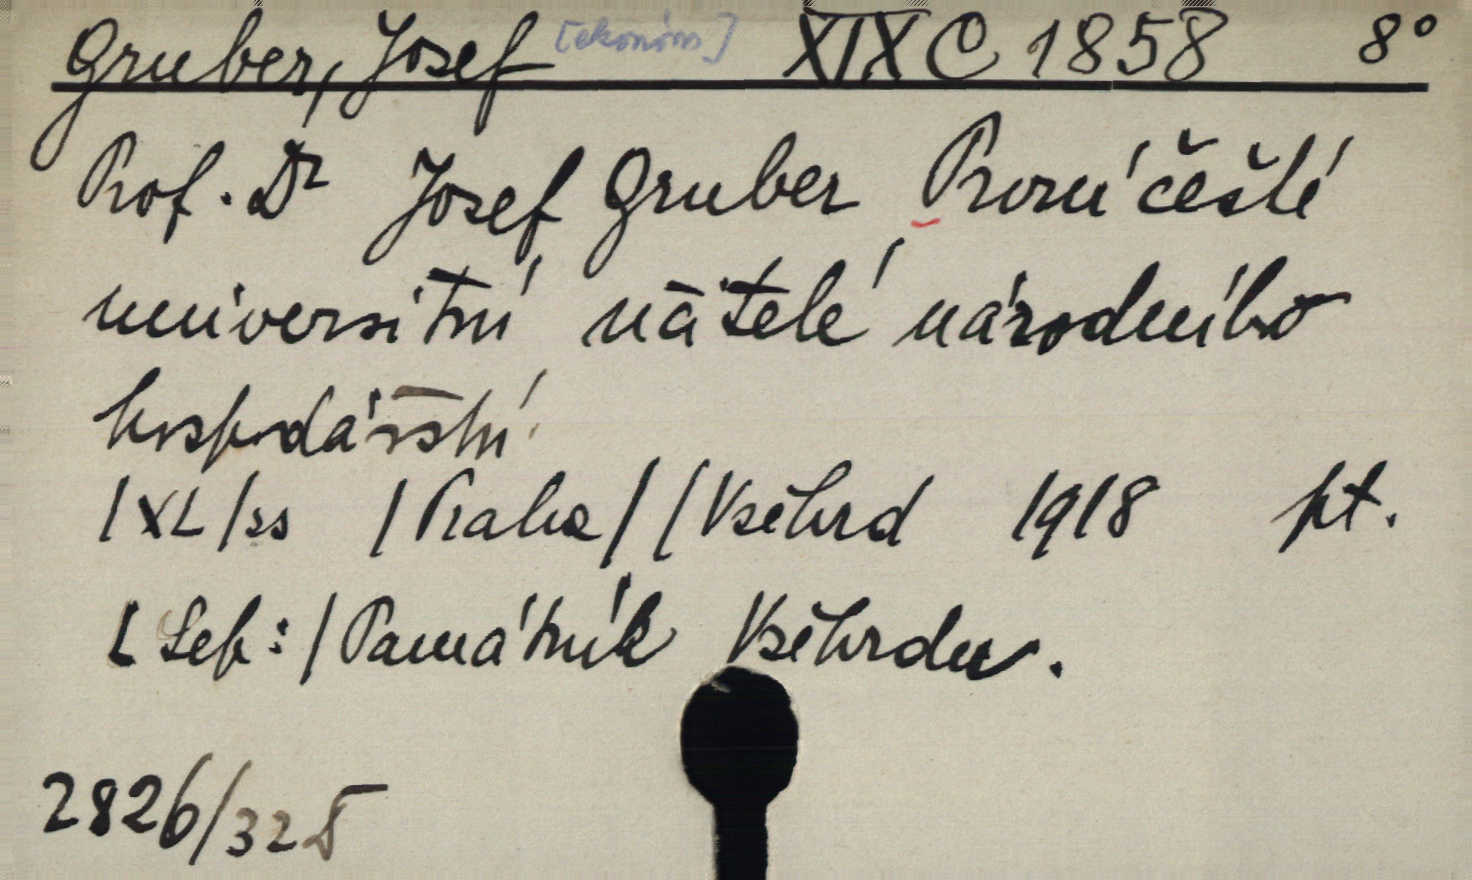 Gruber, Josef [ekonom] XIX C 1858 8°
Prof. Dr Josef Gruber První čeští
universitní učitelé národního
hospodářství.
/XL/ss /Praha/ /Všehrd 1918 pt.
[Seb:/Památník Všehrdu.
2826/32 D